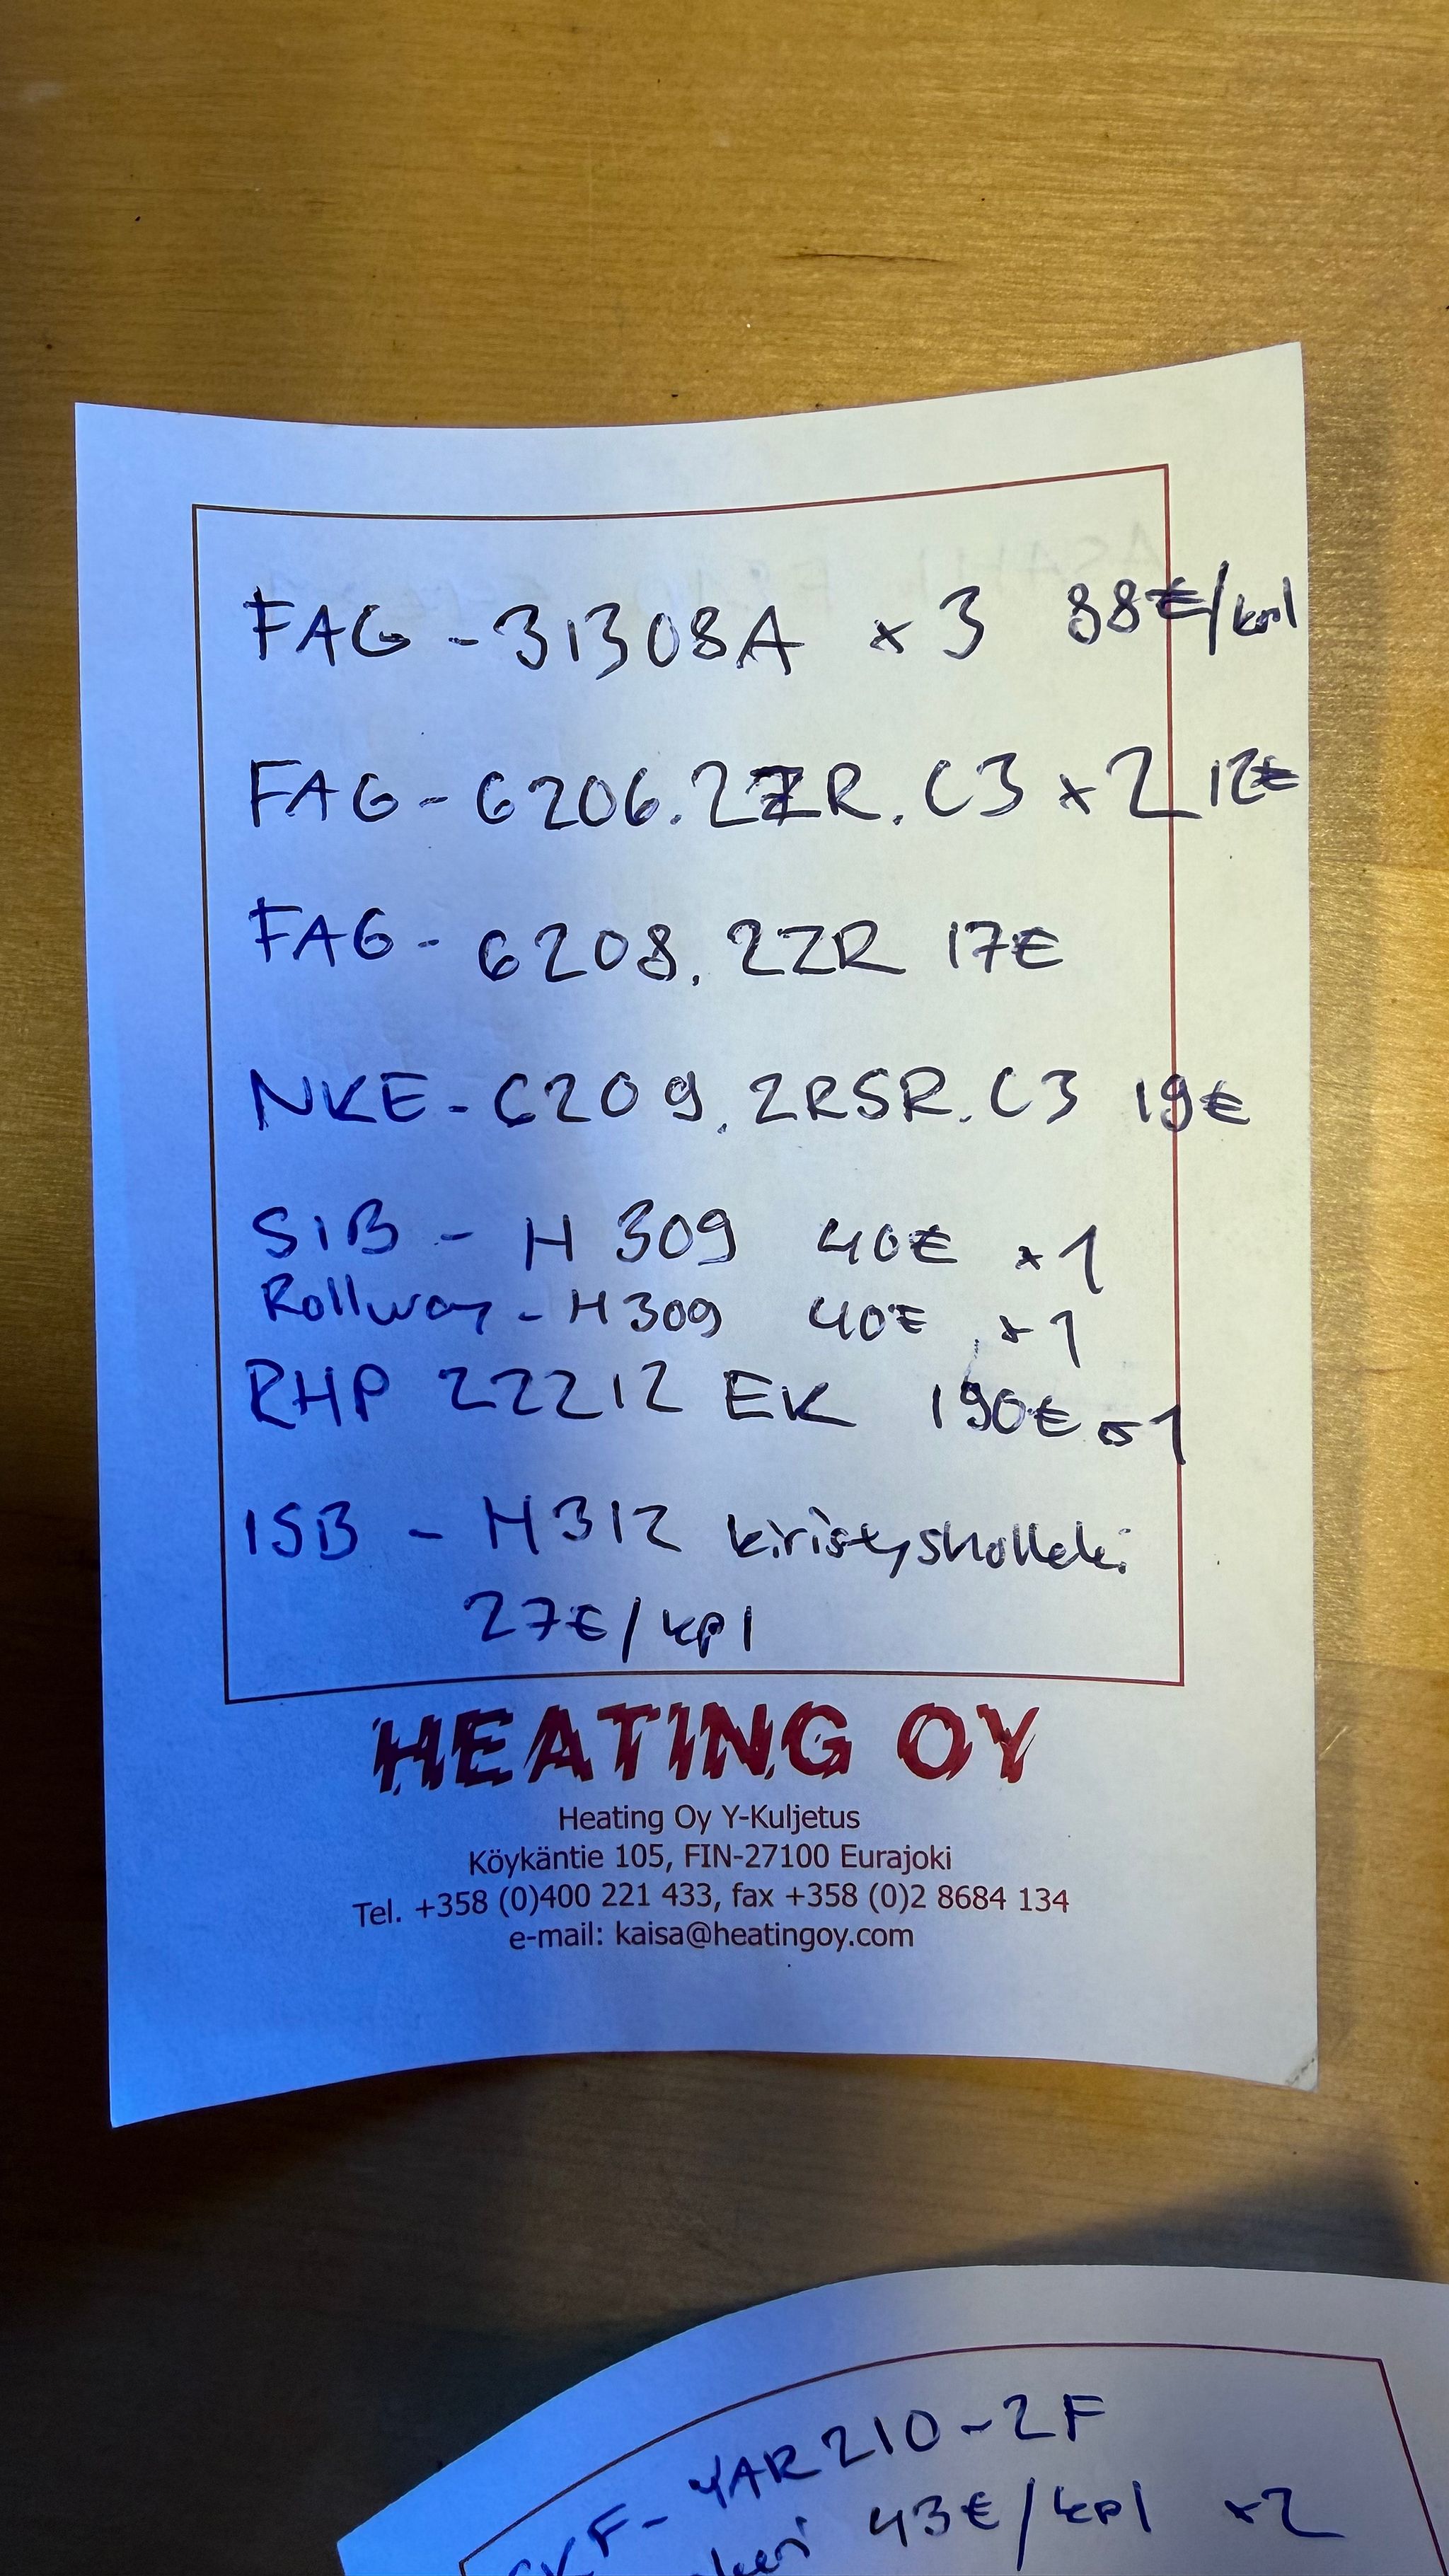 FAG - 31308A x 3 88€/kpl
FAG - 6206.2ZR.C3 x 2 12€
FAG - 6208.2ZR 17€
NKE - 6209.2RSR.C3 19€
SIB - H 309 40€ x1
Rollway - H309 40€ x1
RHP 22212 EK 190€ x1
ISB - H312 kiristysholkki
27€/kpl
HEATING OY
Heating Oy Y-Kuljetus
Köykäntie 105, FIN-27100 Eurajoki
Tel. +358 (0)400 221 433, fax +358 (0)2 8684 134
e-mail: kaisa@heatingoy.com
SKF - YAR210-2F
43€/kpl x2